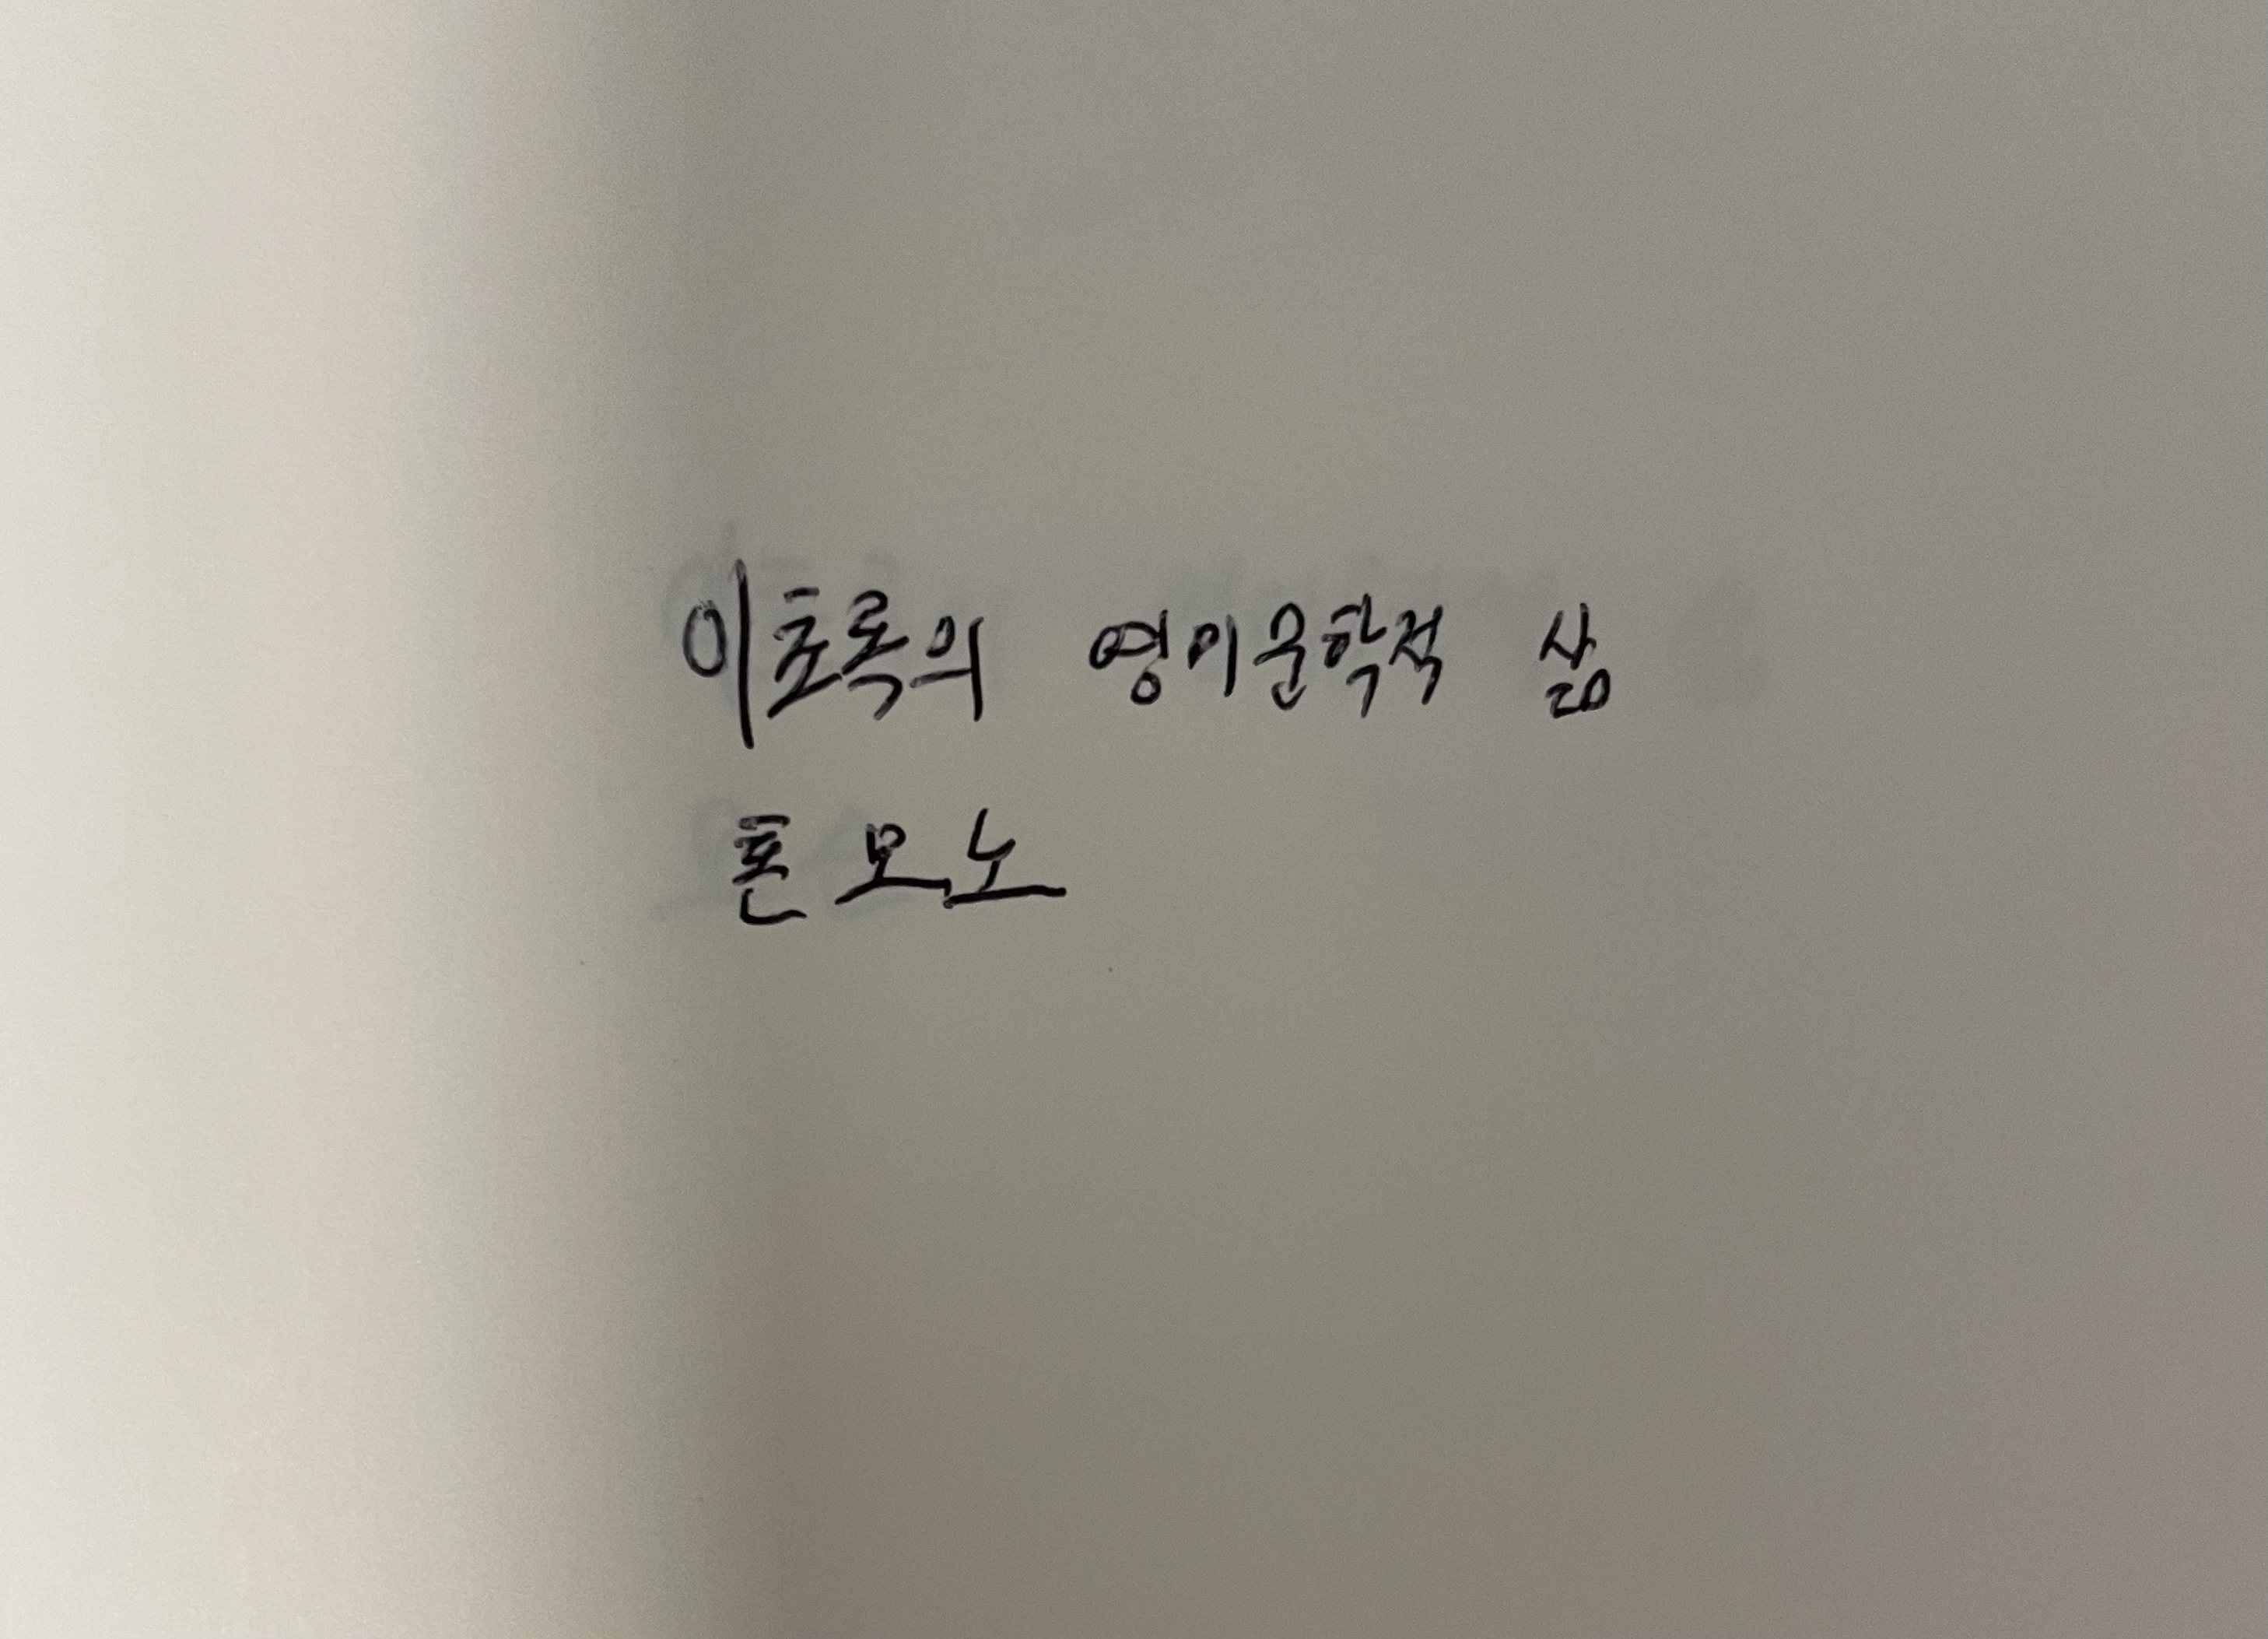 이초록의 영미문학적 삶
톤 모노